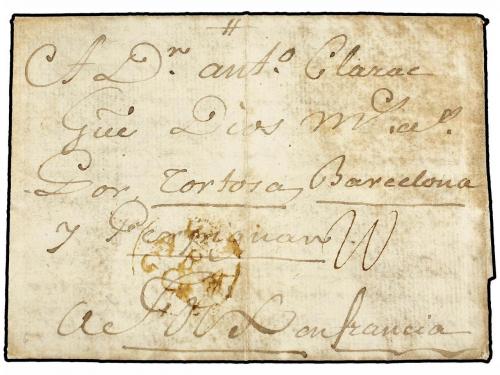 A Dn. antº. Clarac
Gūe Dios Ms. aº.
Por Tortosa, Barcelona
y Perpignan
A en francia